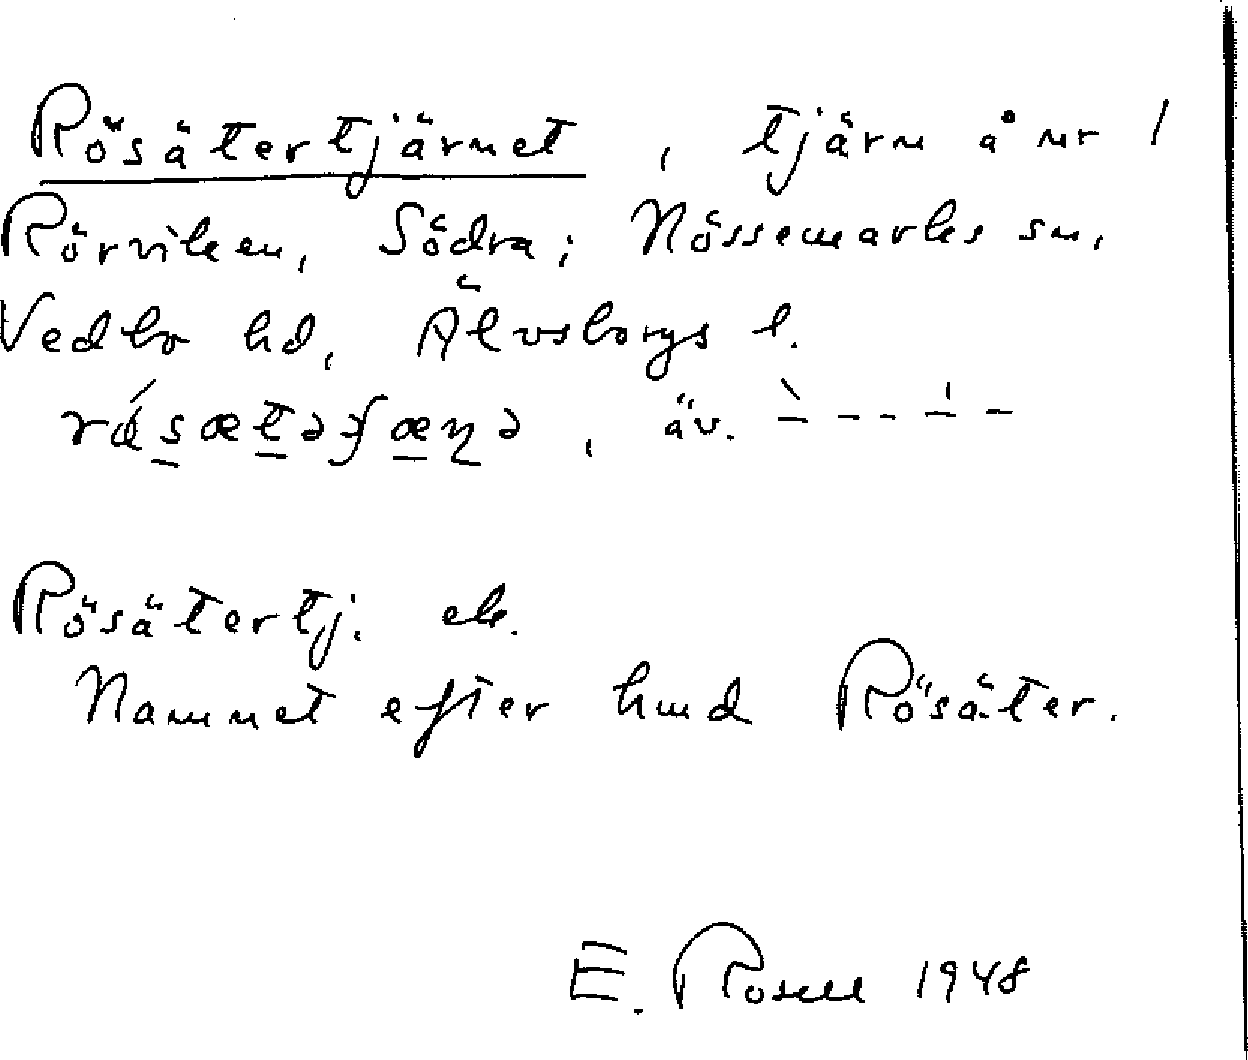 Rösätertjärnet, tjärn å nr 1
Rörviken, Södra; Nössemarks sn,
Vedbo hd, Älvsborgs l.
, äv.
Rösätertj. ek.
Namnet efter hmd Rösäter.
E. Rosell 1948